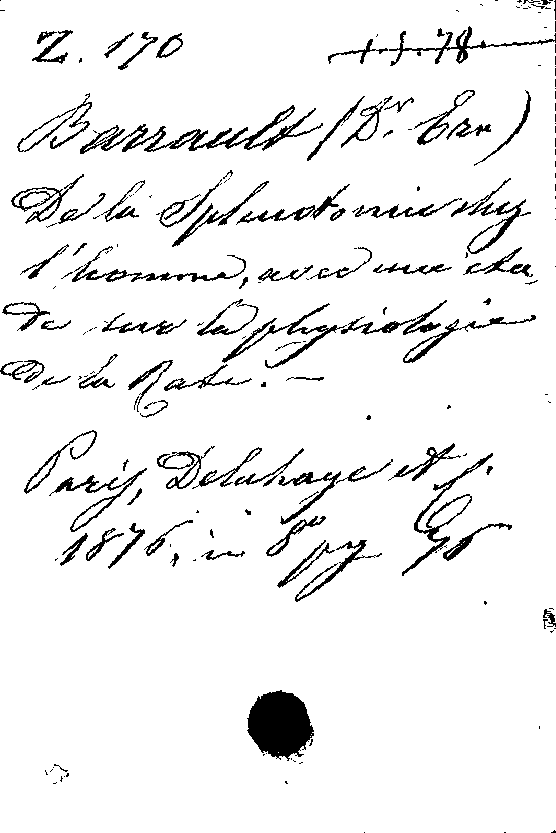 Z. 170
Barrault (Dr. Ern)
De la Splenotomie chez
l'homme, avec une étu
de sur la physiologie
de la Rate. —
Paris, Delahaye et C.
1876, in 8vo pg 96